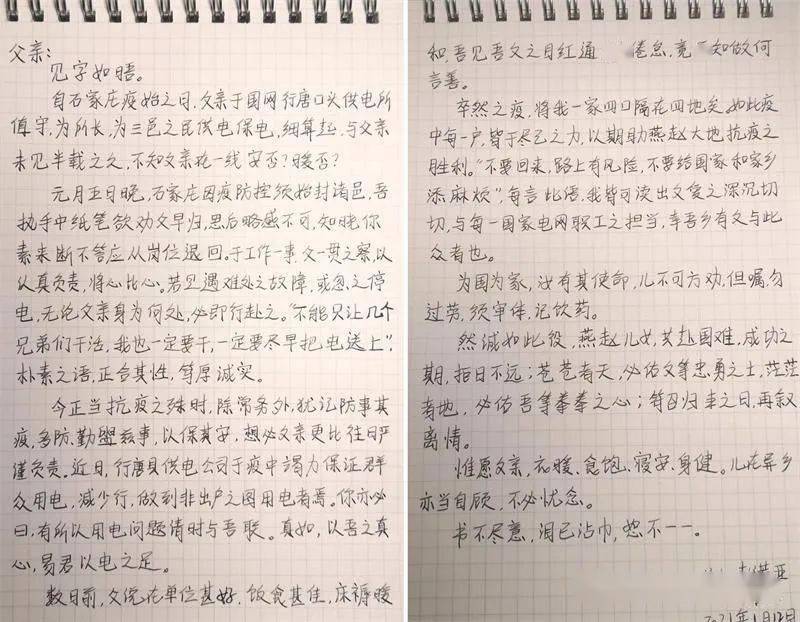 父亲:
见字如晤。
自石家庄疫始之日,父亲于国网行唐口头供电所
值守,为所长,为三邑之民供电保电,细算起,与父亲
未见半载之久,不知父亲于一线安否?暖否?
元月五日晚,石家庄因疫防控须始封诸邑,吾
执手中纸笔欲劝父早归,思后略感不可,知晓你
素来断不答应从岗位退回。于工作一事,父一贯之察,以
认真负责,将心比心。若见遇难处之故障,或急之停
电,无论父亲身为何处,必即行赴之。“不能只让几个
兄弟们干活,我也一定要干,一定要尽早把电送上”,
朴素之语,正合其性,笃厚诚实。
今正当抗疫之殊时,除常务外,犹记防事其
疫,多防、勤盥兹事,以保其安,想必父亲更比往日严
谨负责。近日,行唐县供电公司于疫中竭力保证群
众用电,减少行,做到非出户之图用电者焉。你亦必
曰,有所以用电问题请时与吾联。真如,以吾之真
心,易君以电之足。
数日前,父说在单位甚好,饭食甚佳,床褥暖
和,吾见吾父之目红通 倦怠,竟 知做何
言善。
卒然之疫,将我一家四口隔在四地矣。如此疫
中每一户,皆于尽己之力,以期助燕赵大地抗疫之
胜利。“不要回来,路上有风险,不要给国家和家乡
添麻烦”,每言此语,我皆可读出父爱之深沉切
切,与每一国家电网职工之担当,幸吾乡有父与此
众者也。
为国为家,汝有其使命,儿不可方劝,但嘱,勿
过劳,须审体,记饮药。
然诚如此役,燕赵儿女,共赴国难,成功之
期,指日不远;苍苍者天,必佑父等忠勇之士,茫茫
者地,必佑吾等拳拳之心;待召归丰之日,再叙
离情。
惟愿父亲,衣暖、食饱、寝安、身健。儿在异乡
亦当自顾,不必忧念。
书不尽意,泪已沾巾,恕不一一。
2021年1月12日